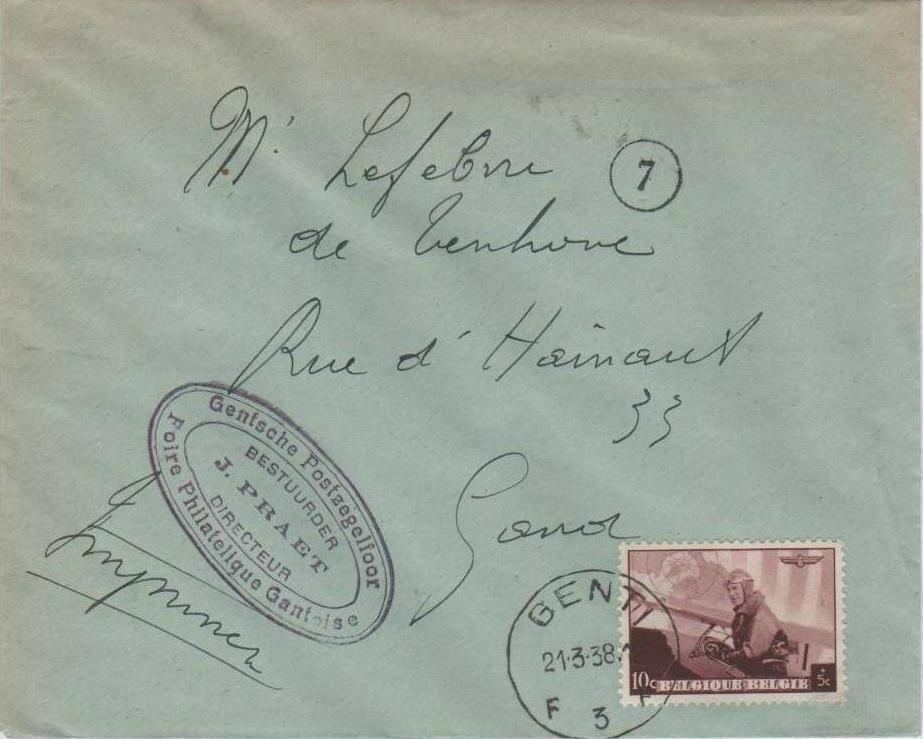 Mr Lefebvre
7
de Tenhove
Rue d' Hainaut
33
Gand
Gentsche Postzegelfoor
BESTUURDER
J. PRAET
DIRECTEUR
Foire Philatelique Gantoise
Imprimés
GENT
21·3·38
F 3 F
10c BELGIQUE·BELGIE + 5c